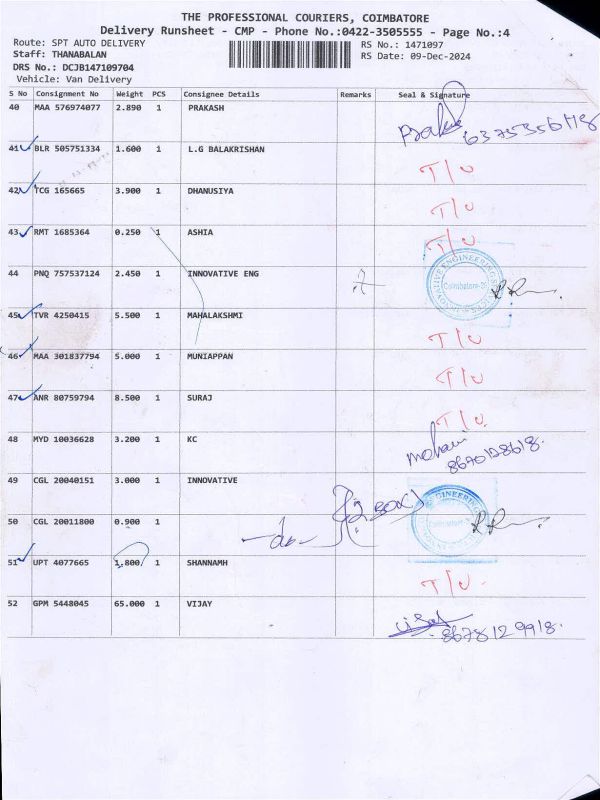 THE PROFESSIONAL COURIERS, COIMBATORE
Delivery Runsheet - CMP - Phone No.:0422-3505555 - Page No.:4
Route: SPT AUTO DELIVERY RS No.: 1471097
Staff: THANABALAN RS Date: 09-Dec-2024
DRS No.: DCJB147109704
Vehicle: Van Delivery
S No Consignment No Weight PCS Consignee Details Remarks Seal & Signature
40 MAA 576974077 2.890 1 PRAKASH
41 BLR 505751334 1.600 1 L.G BALAKRISHAN T/U
42 TCG 165665 3.900 1 DHANUSIYA T/U
43 RMT 1685364 0.250 1 ASHIA T/U
44 PNQ 757537124 2.450 1 INNOVATIVE ENG
45 TVR 4250415 5.500 1 MAHALAKSHMI T/U
46 MAA 301837794 5.000 1 MUNIAPPAN T/U
47 ANR 80759794 8.500 1 SURAJ T/U
48 MYD 10036628 3.200 1 KC 8670128618.
49 CGL 20040151 3.000 1 INNOVATIVE (2 BOX)
50 CGL 20011800 0.900 1
51 UPT 4077665 1.800 1 SHANNAMH T/U
52 GPM 5448045 65.000 1 VIJAY 8678129918.